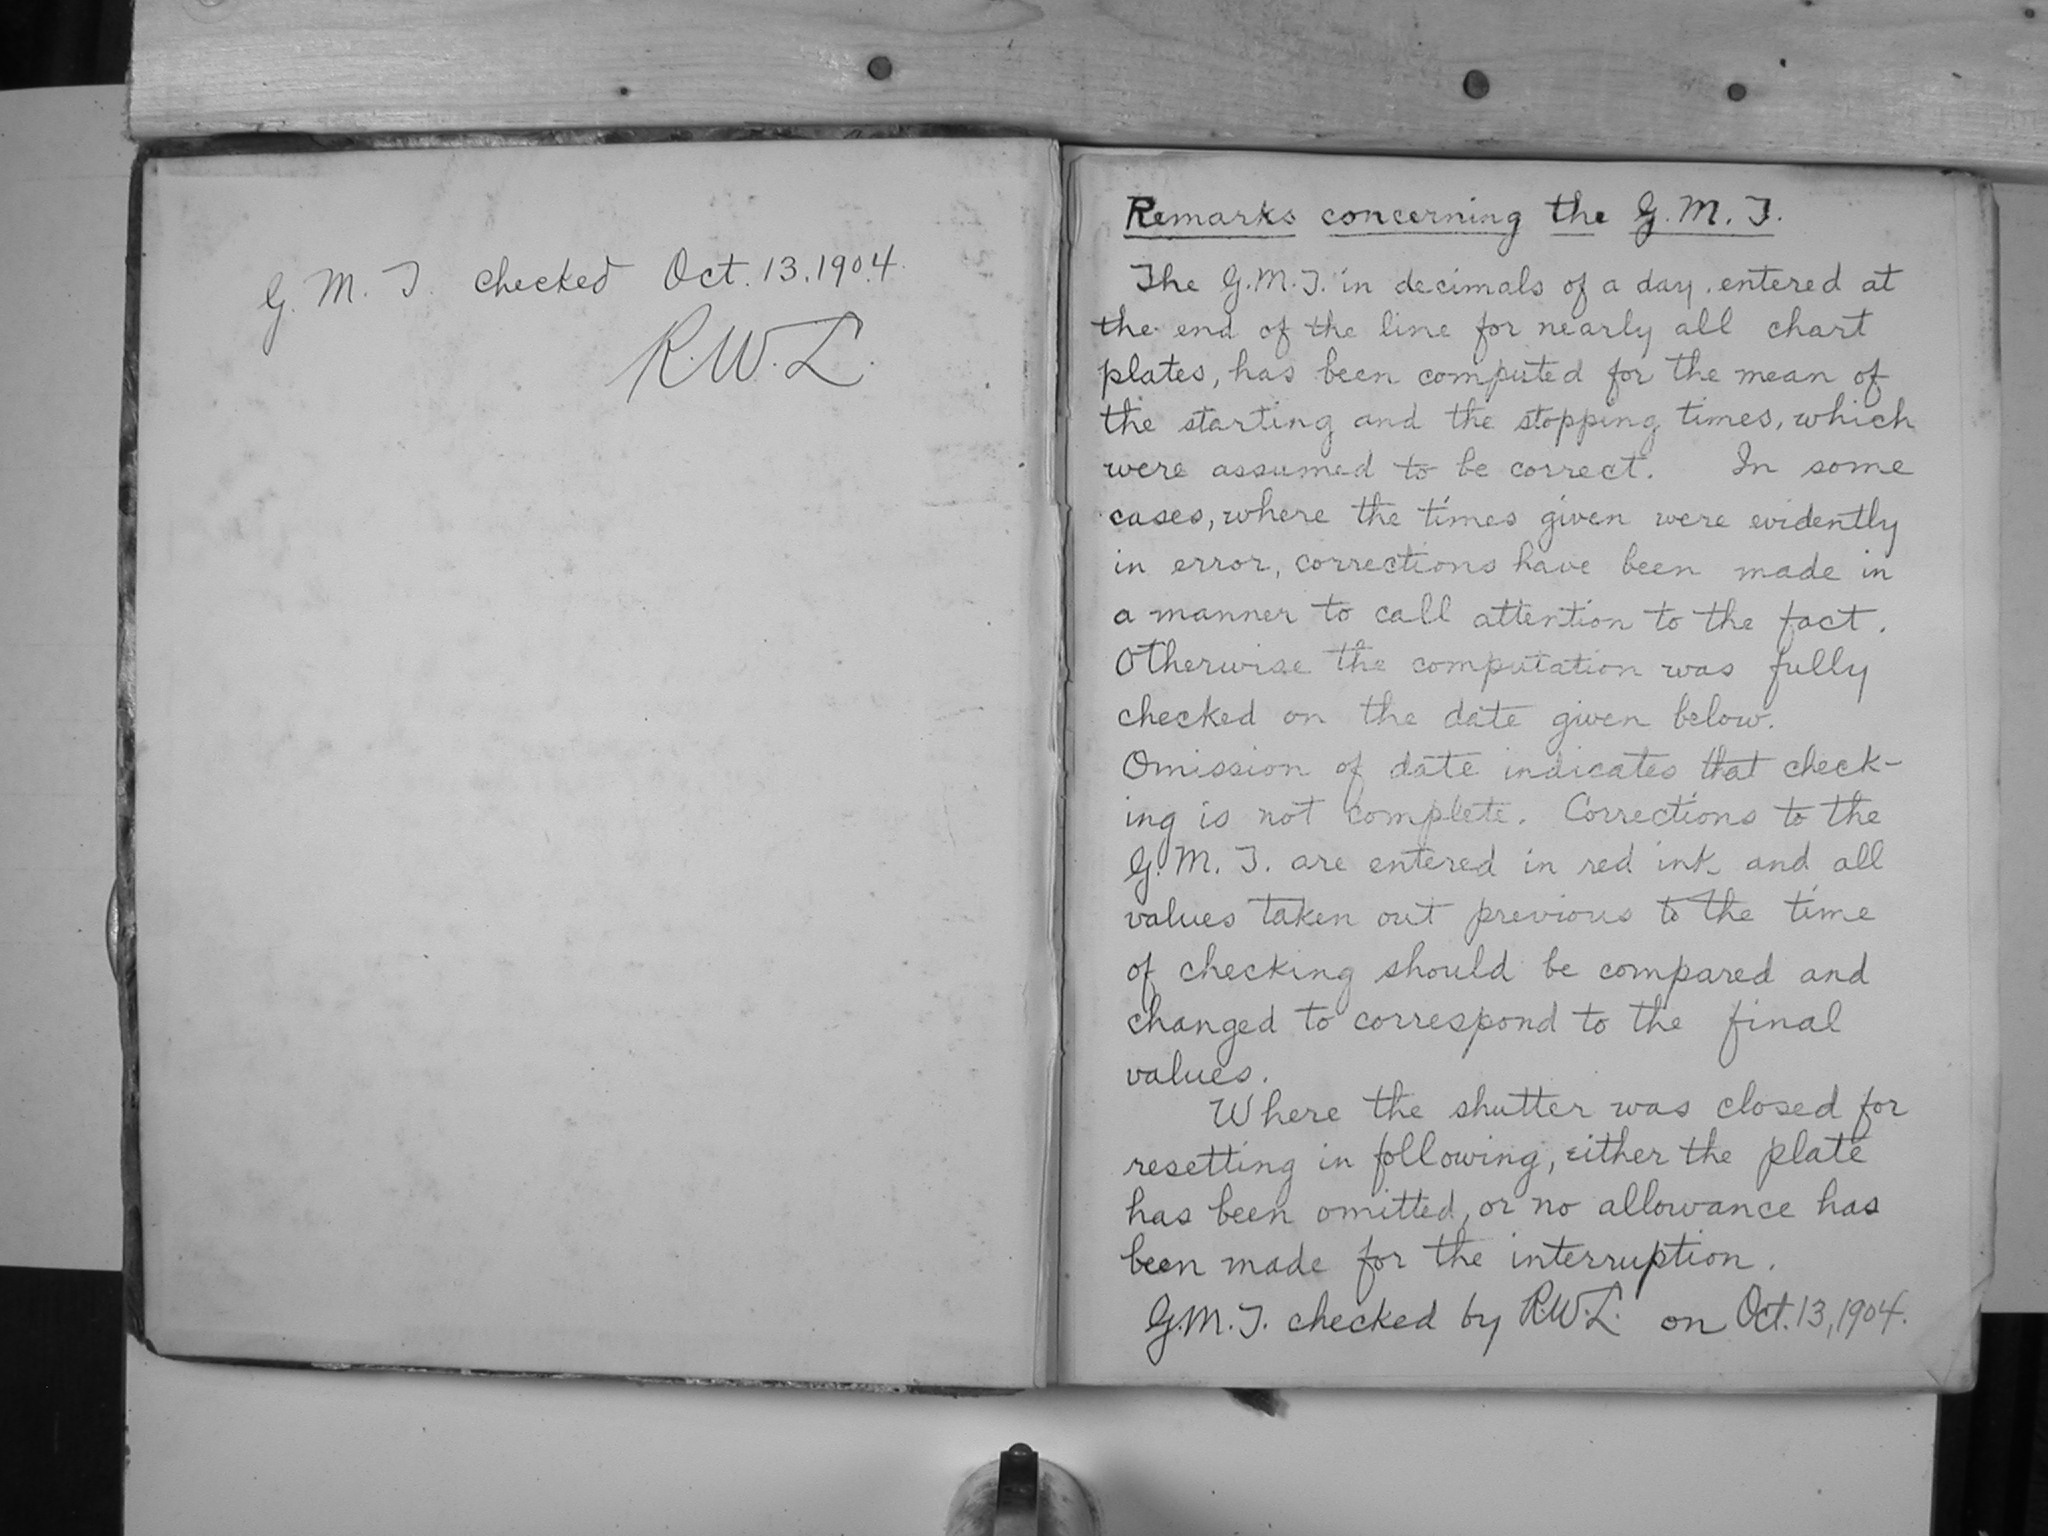 G. M. T. checked Oct. 13. 1904.
R. W. L.
Remarks concerning the G. M. T.
The G. M. T. in decimals of a day, entered at
the end of the line for nearly all chart
plates, has been computed for the mean of
the starting and the stopping times, which
were assumed to be correct. In some
cases, where the times given were evidently
in error, corrections have been made in
a manner to call attention to the fact.
Otherwise the computation was fully
checked on the date given below.
Omission of date indicates that check-
ing is not complete. Corrections to the
G. M. T. are entered in red ink and all
values taken out previous to the time
of checking should be compared and
changed to correspond to the final
values.
Where the shutter was closed for
resetting in following, either the plate
has been omitted, or no allowance has
been made for the interruption.
G. M. T. checked by R. W. L. on Oct. 13, 1904.